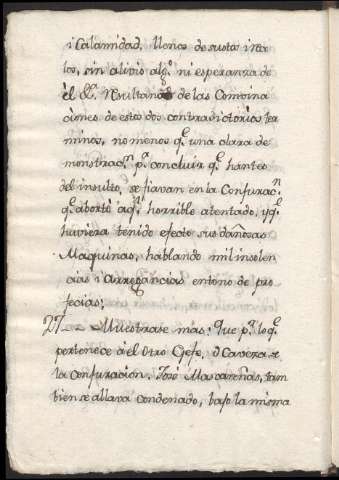 i Calamidad, llenos de sustos i rece
los, sin alivio alg.º ni esperanza de
èl &.ª Resultando de las Combina
ciones de estos dos contradictórios ter
minos, no menos q.e una clara de
monstrac.n p.ª concluir q.e hantes
del insulto, se fiavan en la Conjurac.n
q.e abortó aq.l horrible atentado, y q.e
huviera tenido efecto sus dañosas
Maquinas, hablando mil insolen
cias i arrogáncias en tono de pro
fecias;
27.__ Muestrase mas: Que p.r lo q.e
pertenece à el Otro Gefe, ò Cavera de
la Conjuración. José Mascareñas, tam
bien se allava Condenado, bajo la misma